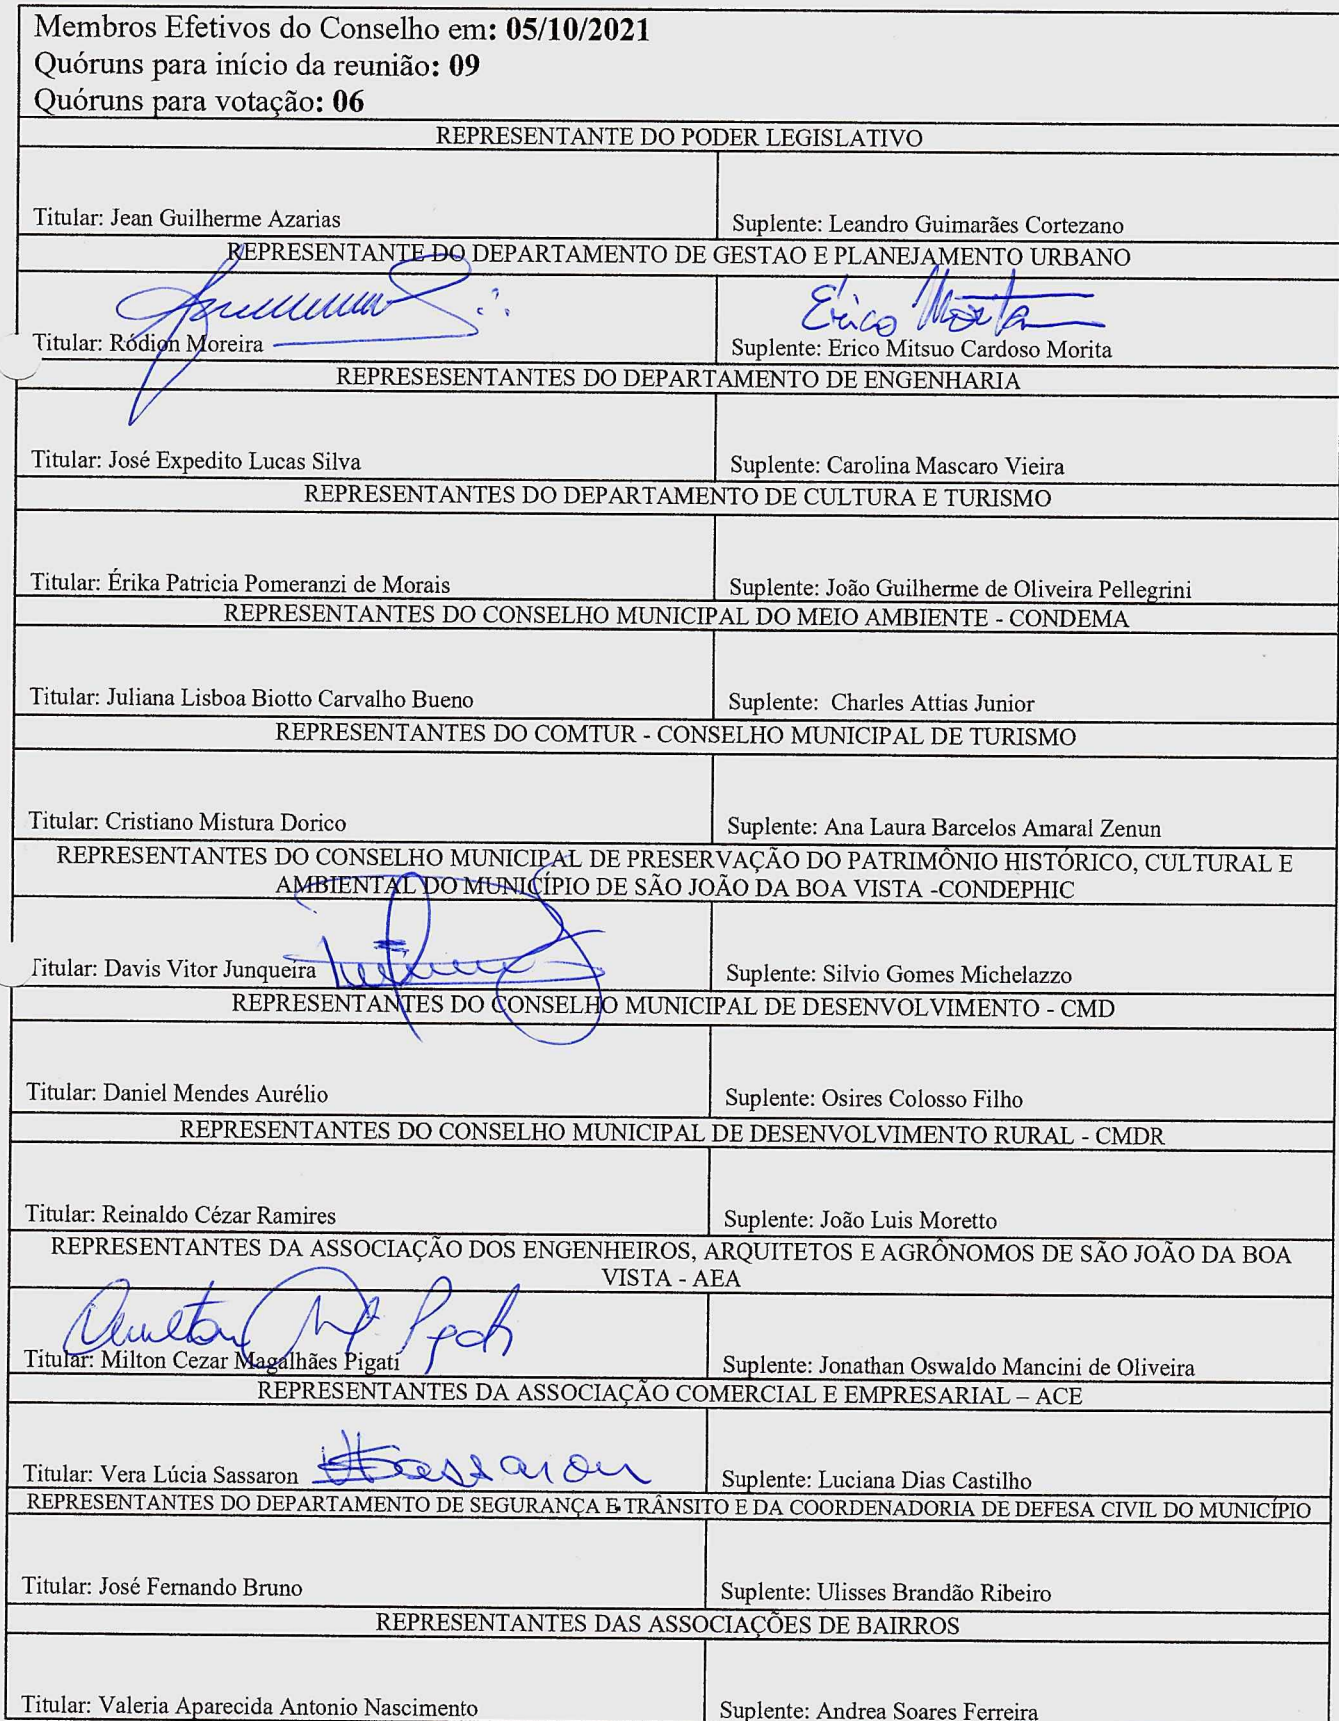 Membros Efetivos do Conselho em: 05/10/2021
Quóruns para início da reunião: 09
Quóruns para votação: 06
REPRESENTANTE DO PODER LEGISLATIVO
Titular: Jean Guilherme Azarias
Suplente: Leandro Guimarães Cortezano
REPRESENTANTE DO DEPARTAMENTO DE GESTAO E PLANEJAMENTO URBANO
Erico Morita
Titular: Ródion Moreira
Suplente: Erico Mitsuo Cardoso Morita
REPRESESENTANTES DO DEPARTAMENTO DE ENGENHARIA
Titular: José Expedito Lucas Silva
Suplente: Carolina Mascaro Vieira
REPRESENTANTES DO DEPARTAMENTO DE CULTURA E TURISMO
Titular: Érika Patricia Pomeranzi de Morais
Suplente: João Guilherme de Oliveira Pellegrini
REPRESENTANTES DO CONSELHO MUNICIPAL DO MEIO AMBIENTE - CONDEMA
Titular: Juliana Lisboa Biotto Carvalho Bueno
Suplente: Charles Attias Junior
REPRESENTANTES DO COMTUR - CONSELHO MUNICIPAL DE TURISMO
Titular: Cristiano Mistura Dorico
Suplente: Ana Laura Barcelos Amaral Zenun
REPRESENTANTES DO CONSELHO MUNICIPAL DE PRESERVAÇÃO DO PATRIMÔNIO HISTÓRICO, CULTURAL E
AMBIENTAL DO MUNICÍPIO DE SÃO JOÃO DA BOA VISTA -CONDEPHIC
Titular: Davis Vitor Junqueira
Suplente: Silvio Gomes Michelazzo
REPRESENTANTES DO CONSELHO MUNICIPAL DE DESENVOLVIMENTO - CMD
Titular: Daniel Mendes Aurélio
Suplente: Osires Colosso Filho
REPRESENTANTES DO CONSELHO MUNICIPAL DE DESENVOLVIMENTO RURAL - CMDR
Titular: Reinaldo Cézar Ramires
Suplente: João Luis Moretto
REPRESENTANTES DA ASSOCIAÇÃO DOS ENGENHEIROS, ARQUITETOS E AGRÔNOMOS DE SÃO JOÃO DA BOA
VISTA - AEA
Titular: Milton Cezar Magalhães Pigati
Suplente: Jonathan Oswaldo Mancini de Oliveira
REPRESENTANTES DA ASSOCIAÇÃO COMERCIAL E EMPRESARIAL – ACE
Sassaron
Titular: Vera Lúcia Sassaron
Suplente: Luciana Dias Castilho
REPRESENTANTES DO DEPARTAMENTO DE SEGURANÇA E TRÂNSITO E DA COORDENADORIA DE DEFESA CIVIL DO MUNICÍPIO
Titular: José Fernando Bruno
Suplente: Ulisses Brandão Ribeiro
REPRESENTANTES DAS ASSOCIAÇÕES DE BAIRROS
Titular: Valeria Aparecida Antonio Nascimento
Suplente: Andrea Soares Ferreira